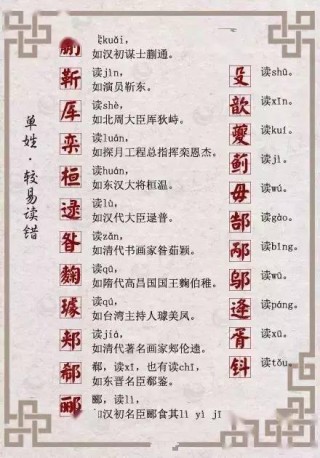 单姓·较易读错
蒯 kuǎi,
如汉初谋士蒯通。
靳 读jìn,
如演员靳东。
厍 读shè,
如北周大臣厍狄峙。
栾 读luán,
如探月工程总指挥栾恩杰。
桓 读huán,
如东汉大将桓温。
逯 读lù,
如汉代大臣逯普。
昝 读zǎn,
如清代书画家昝茹颖。
麴 读qū,
如隋代高昌国国王麴伯雅。
璩 读qú,
如台湾主持人璩美凤。
郏 读jiá,
如清代著名画家郏伦逵。
郗 郗,读xī,也有读chī,
如东晋名臣郗鉴。
郦 郦,读lì,
如汉初名臣郦食其lì yì jī
殳 读shū。
歆 读xīn。
夔 读kuí。
蓟 读jì。
毋 读wú。
郜 读gào。
邴 读bǐng。
邬 读wū。
逄 读páng。
胥 读xū。
钭 读tǒu。